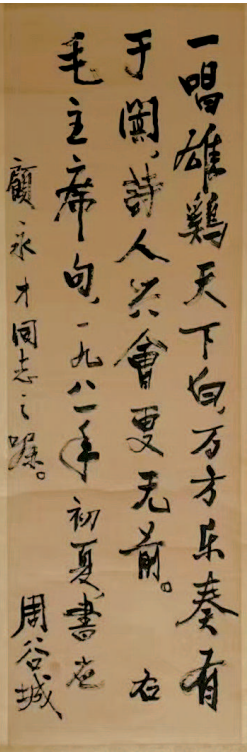 一唱雄鷄天下白,万方乐奏有
于闐,詩人兴會更无前。右
毛主席句,一九八一年初夏書应
顧永才同志之嘱。
周谷城